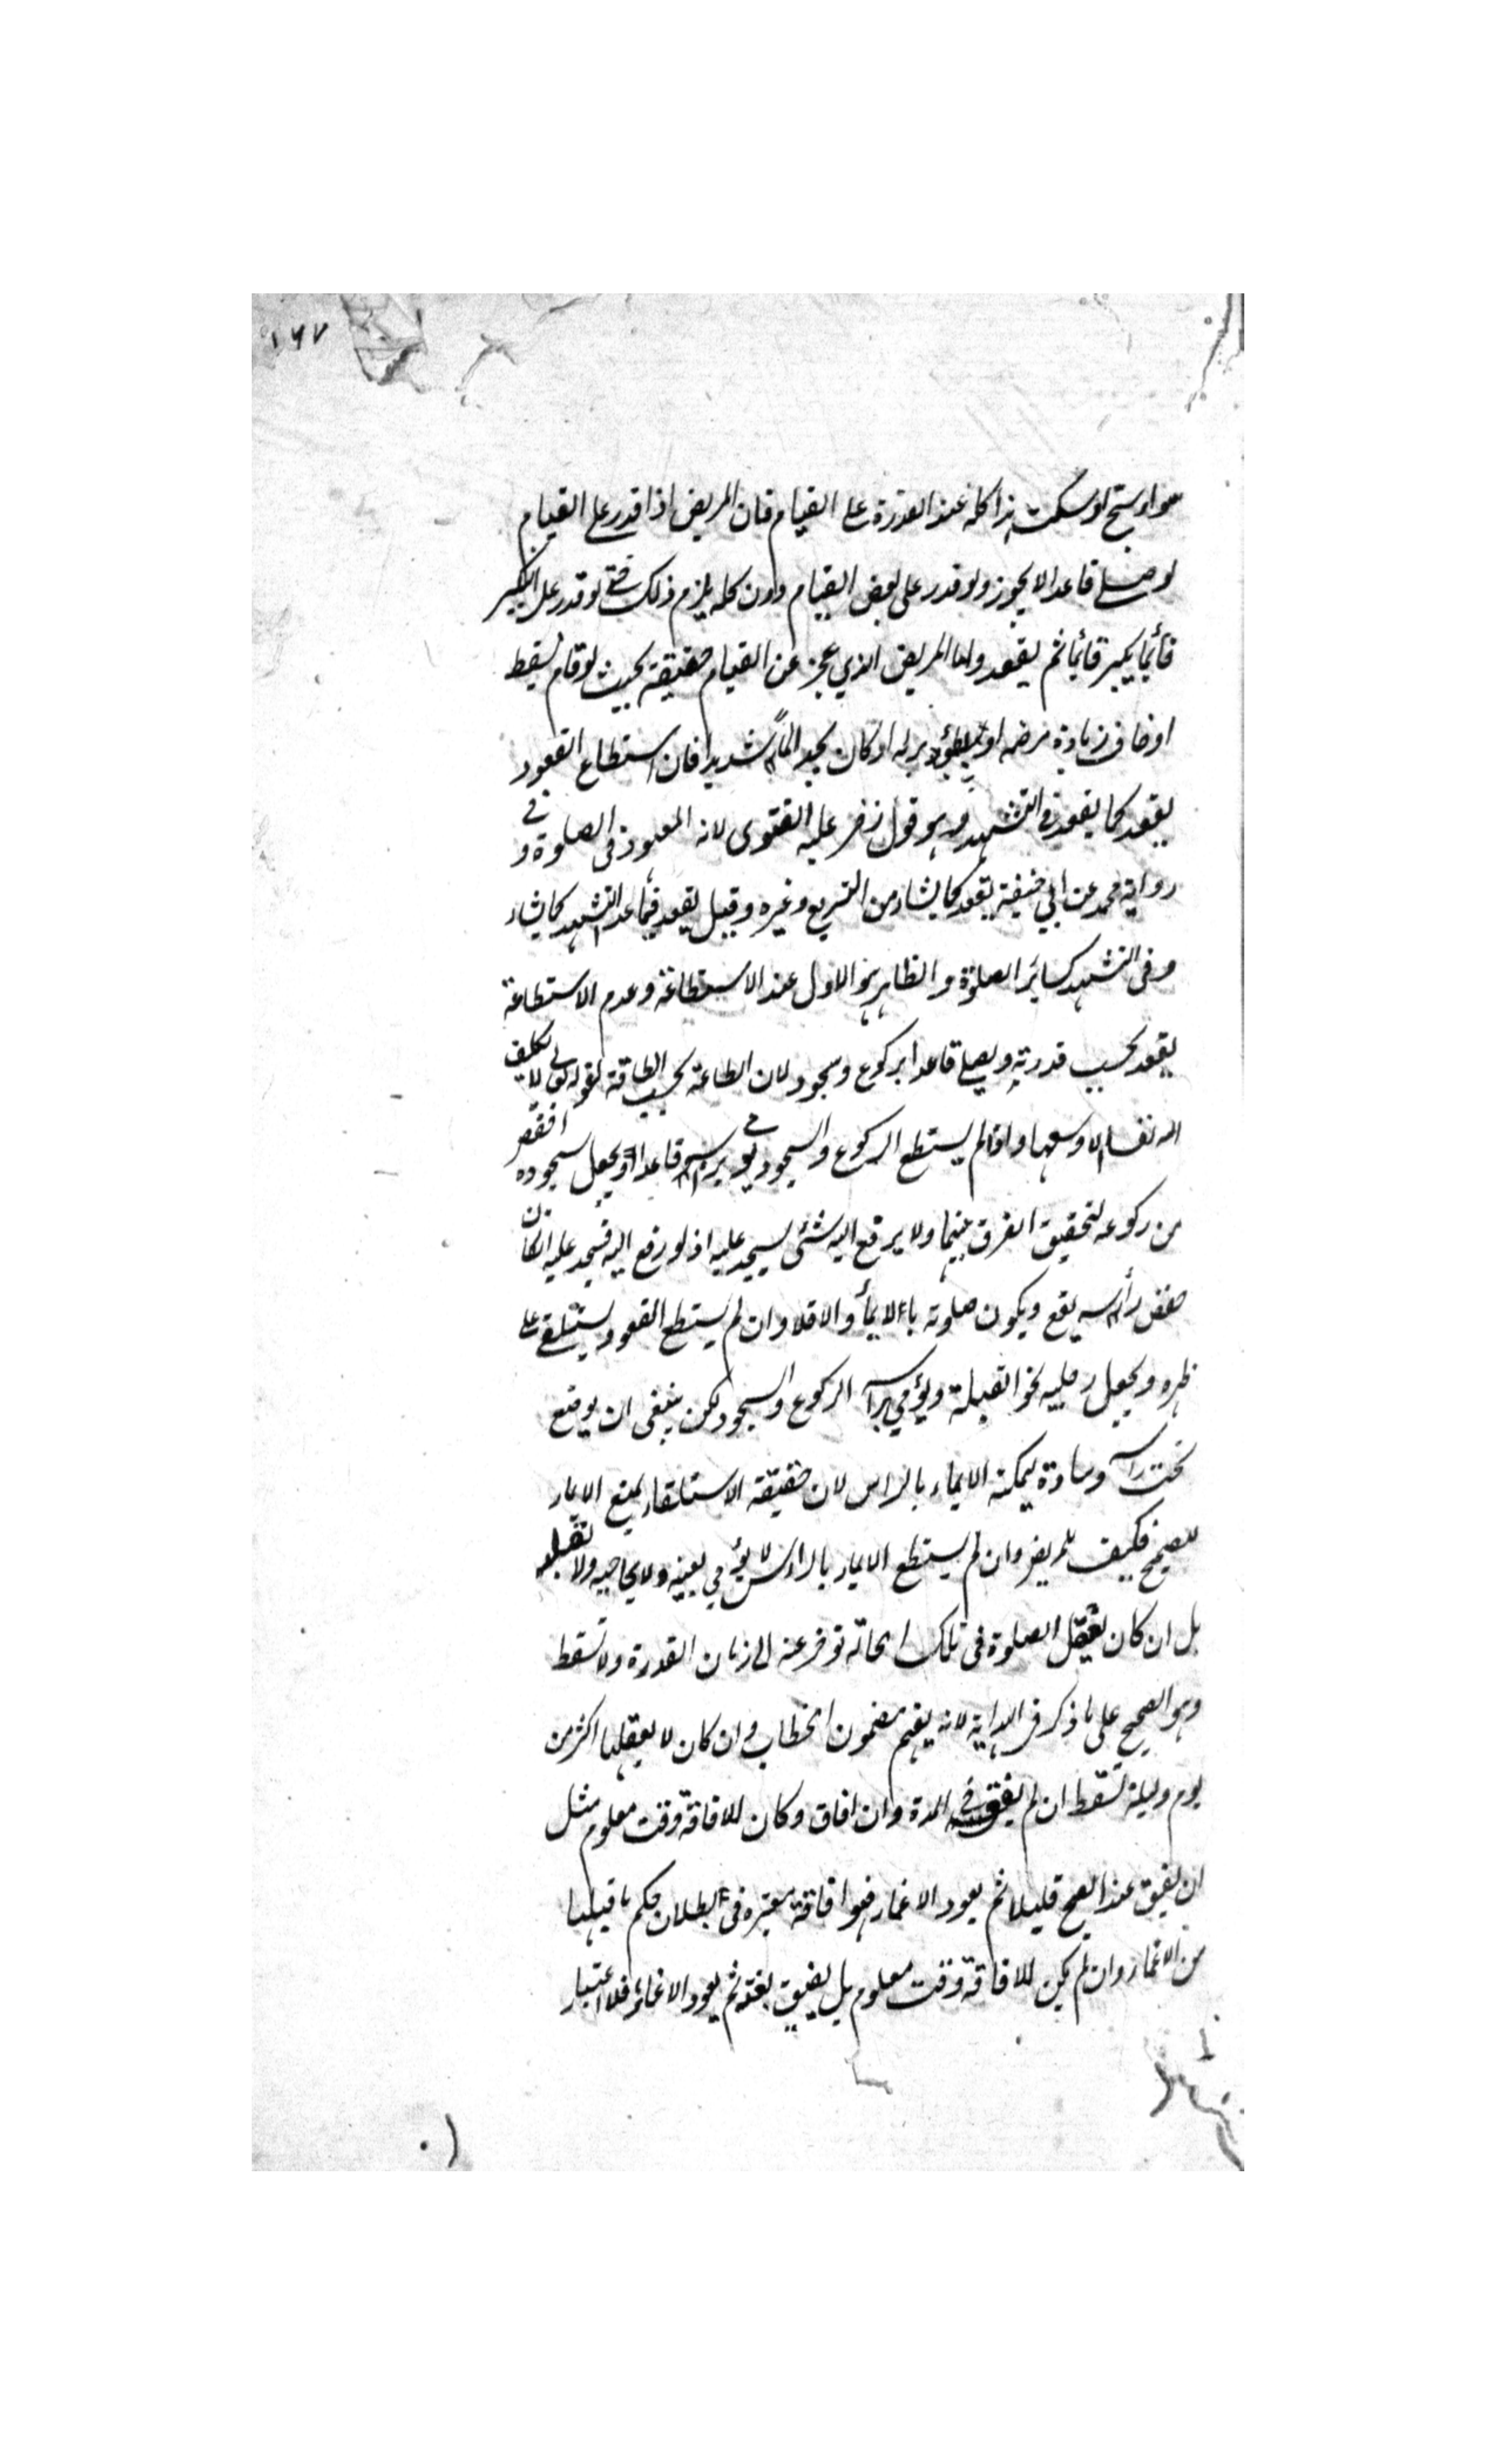 ١٦٧
سواء سبح او سكت هذا كله عند القدرة على القيام فان المريض اذا قدر على القيام
لو صلى قاعدا لا يجوز ولو قدر على بعض القيام دون كله يلزم ذلك حتى لو قدر على التكبير
قائما يكبر قائما ثم يقعد واما المريض الذي عجز عن القيام حقيقة بحيث لو قام يسقط
او خاف زيادة مرضه او بطؤ برئه او كان يجد الماً شديدا فان استطاع القعود
يقعد كما يقعد في التشهد وهو قول زفر عليه الفتوى لانه المعهود في الصلوة و في
رواية محمد عن ابي حنيفة يقعد كما يشاء من التربع وغيره وقيل يقعد فيما عدا التشهد كما يشاء
وفى التشهد كسائر الصلوة والظاهر هو الاول عند الاستطاعة وعدم الاستطاعة
يقعد بحسب قدرته ويصلي قاعدا بركوع وسجود لان الطاعة بحسب الطاقة لقوله تعالى لا يكلف
الله نفسا الا وسعها واذا لم يستطع الركوع والسجود يومي برأسه قاعدا ويجعل سجوده اخفض
من ركوعه لتحقيق الفرق بينهما ولا يرفع اليه شئ يسجد عليه اذ لو رفع اليه فسجد عليه ان كان
خفض رأسه يقع ويكون صلوته بالايماء والا فلا وان لم يستطع القعود يستلقى على
ظهره ويجعل رجليه نحو القبلة ويؤمي برأسه الركوع والسجود لكن ينبغى ان يوضع
تحت رأسه وسادة ليمكنه الايماء بالراس لان حقيقة الاستلقاء يمنع الايماء
للصحيح فكيف للمريض وان لم يستطع الايماء بالرأس لا يؤمي بعينيه ولا بحاجبيه ولا بقلبه
بل ان كان يعقل الصلوة فى تلك الحالة توخر عنه الى زمان القدرة ولا تسقط
وهو الصحيح على ما ذكر فى الهداية لانه يفهم مضمون الخطاب وان كان لا يعقلها اكثر من
يوم وليلة تسقط ان لم يفق في المدة وان افاق وكان للافاقة وقت معلوم مثل
ان يفيق عند الصبح قليلا ثم يعود الاغماء فهو افاقة معتبرة فى بطلان حكم ما قبلها
من الاغماء وان لم يكن للافاقة وقت معلوم بل يفيق بغتة ثم يعود الاغماء فلا اعتبار